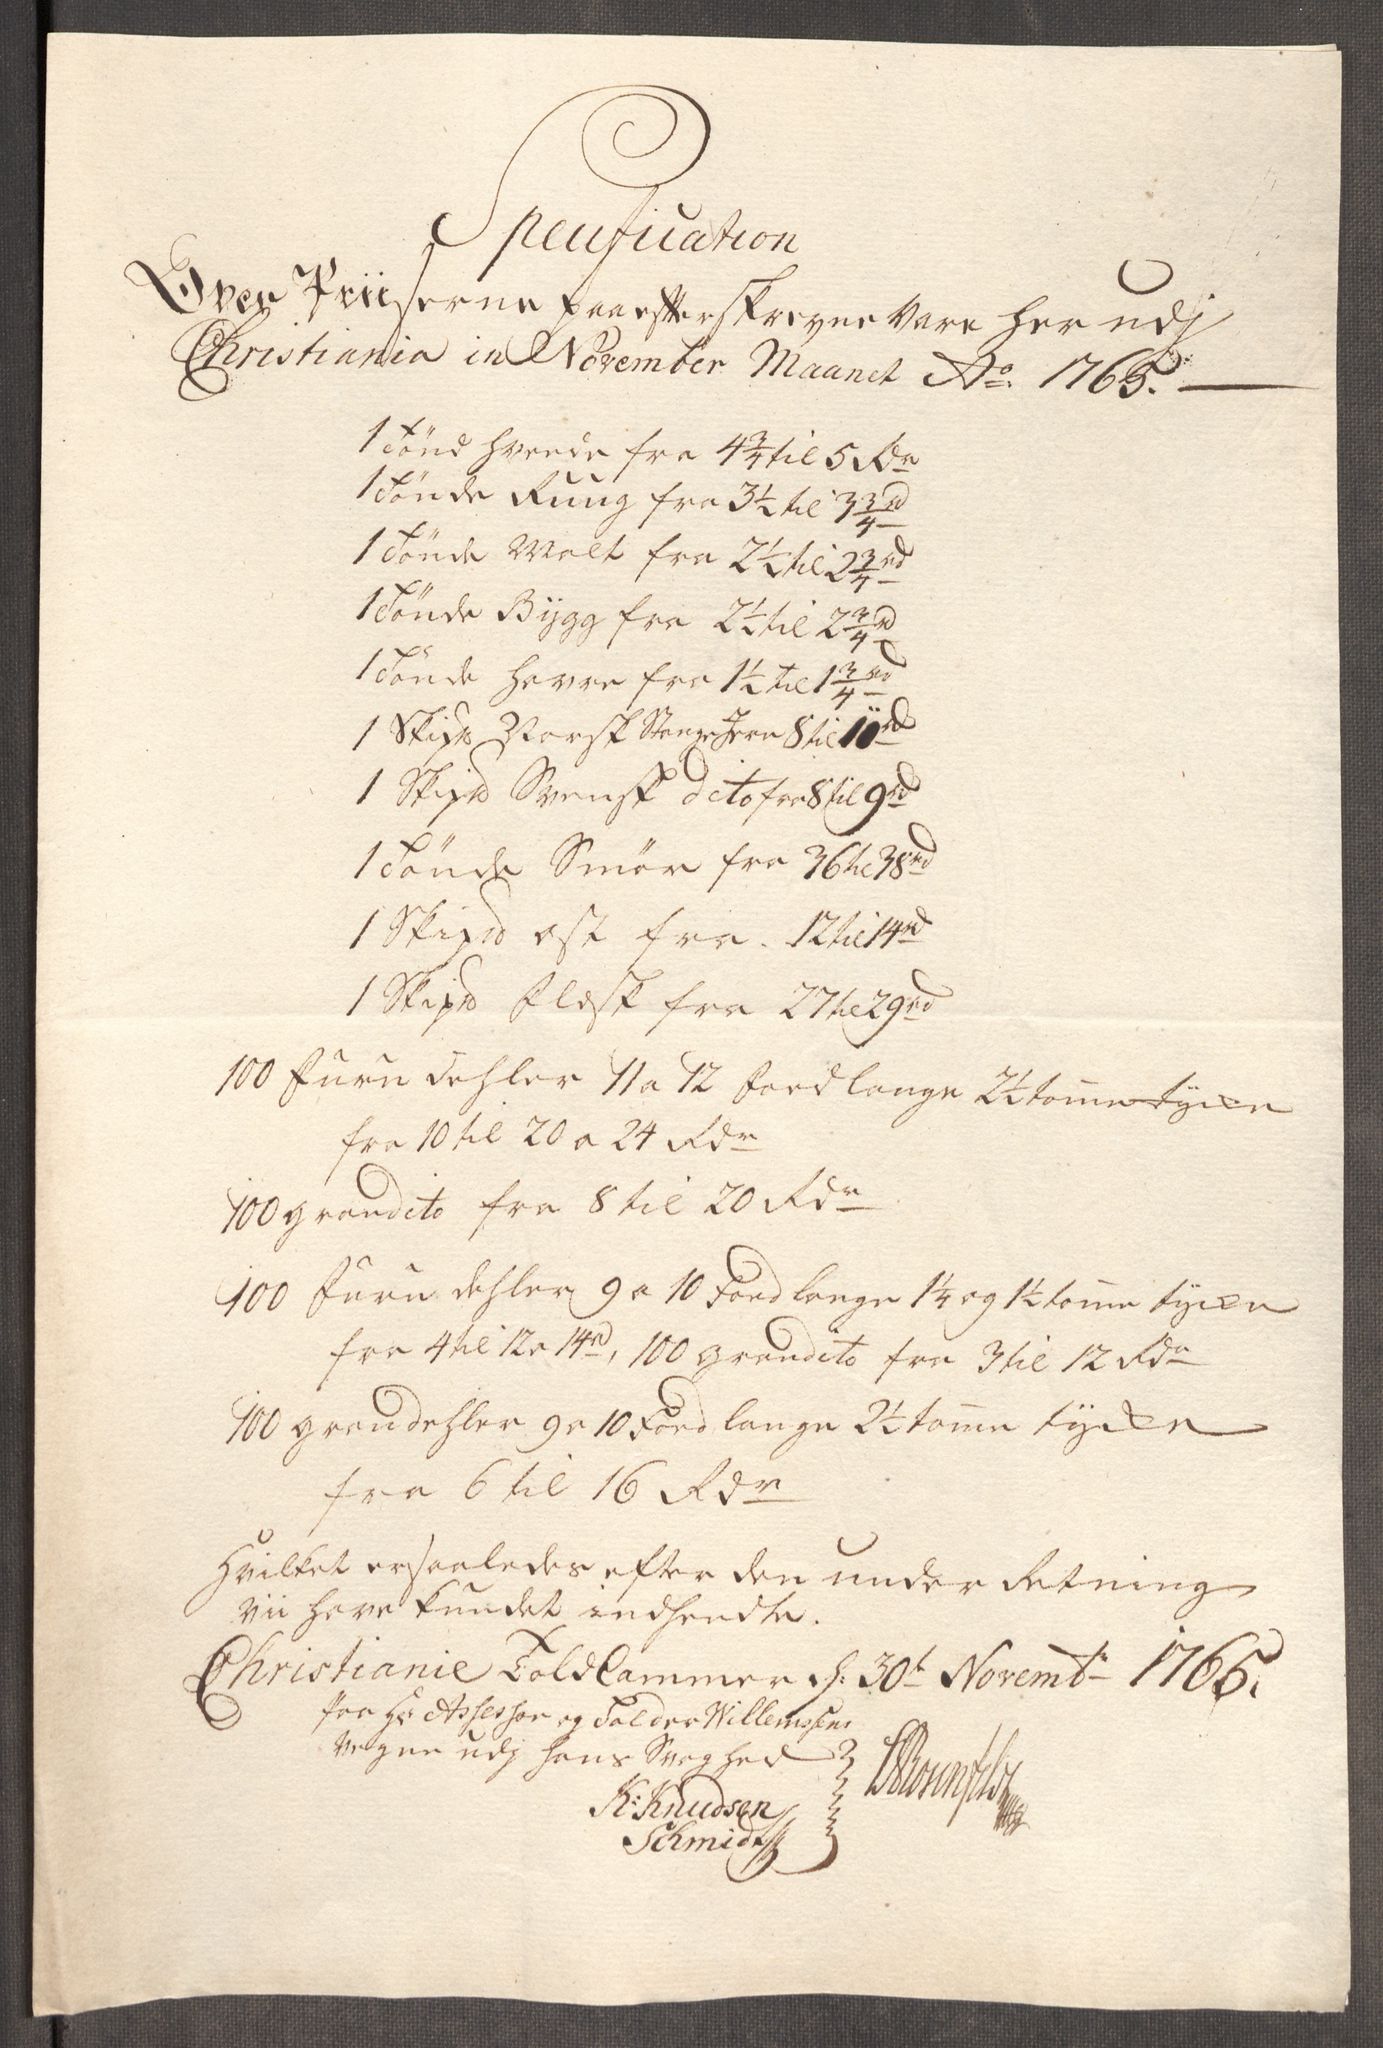 Specification
Over Priiserne paa efterskrevne Vare her udj
Christiania in November Maanet Ao. 1765.
1 Tönd hvede fra 4 3/4 til 5 Rdr
1 Tönde Ruug fra 3 1/2 til 3 3/4 rd
1 Tönde Malt fra 2 1/2 til 2 3/4 rd
1 Tönde Bygg fra 2 1/2 til 2 3/4 rd
1 Tönde havre fra 1 1/2 til 1 3/4 rd
1 Skipd Norsk Stange Jern 8 til 10 rd
1 Skipd Svensk dito fra 8 til 9 rd
1 Tönde Smör fra 36 til 38 rd
1 Skipd ost fra. 12 til 14 rd
1 Skipd Flesk fra 27 til 29 rd
100 Furu dehler 11 a 12 Foed lange 2 1/2 tomme tycke
fra 10 til 20 a 24 Rdr
100 gran dito fra 8 til 20 Rdr
100 Furu dehler 9 a 10 Foed lange 1 1/4 og 1 1/2 tomme tycke
fra 4 til 12 a 14 rd, 100 gran dito fra 3 til 12 Rdr
100 gran dehler 9 a 10 Foed lange 2 1/2 tomme tycke
fra 6 til 16 Rdr
Hvilket er saaledes efter den under Retning
vii have kundet indhendte.
Christianie Told Cammer d. 30t Novembr 1765.
Paa Hr Assessor og Tolder Willemsens
vegne udj hans Svaghed
K: Knudsen
Schmidt